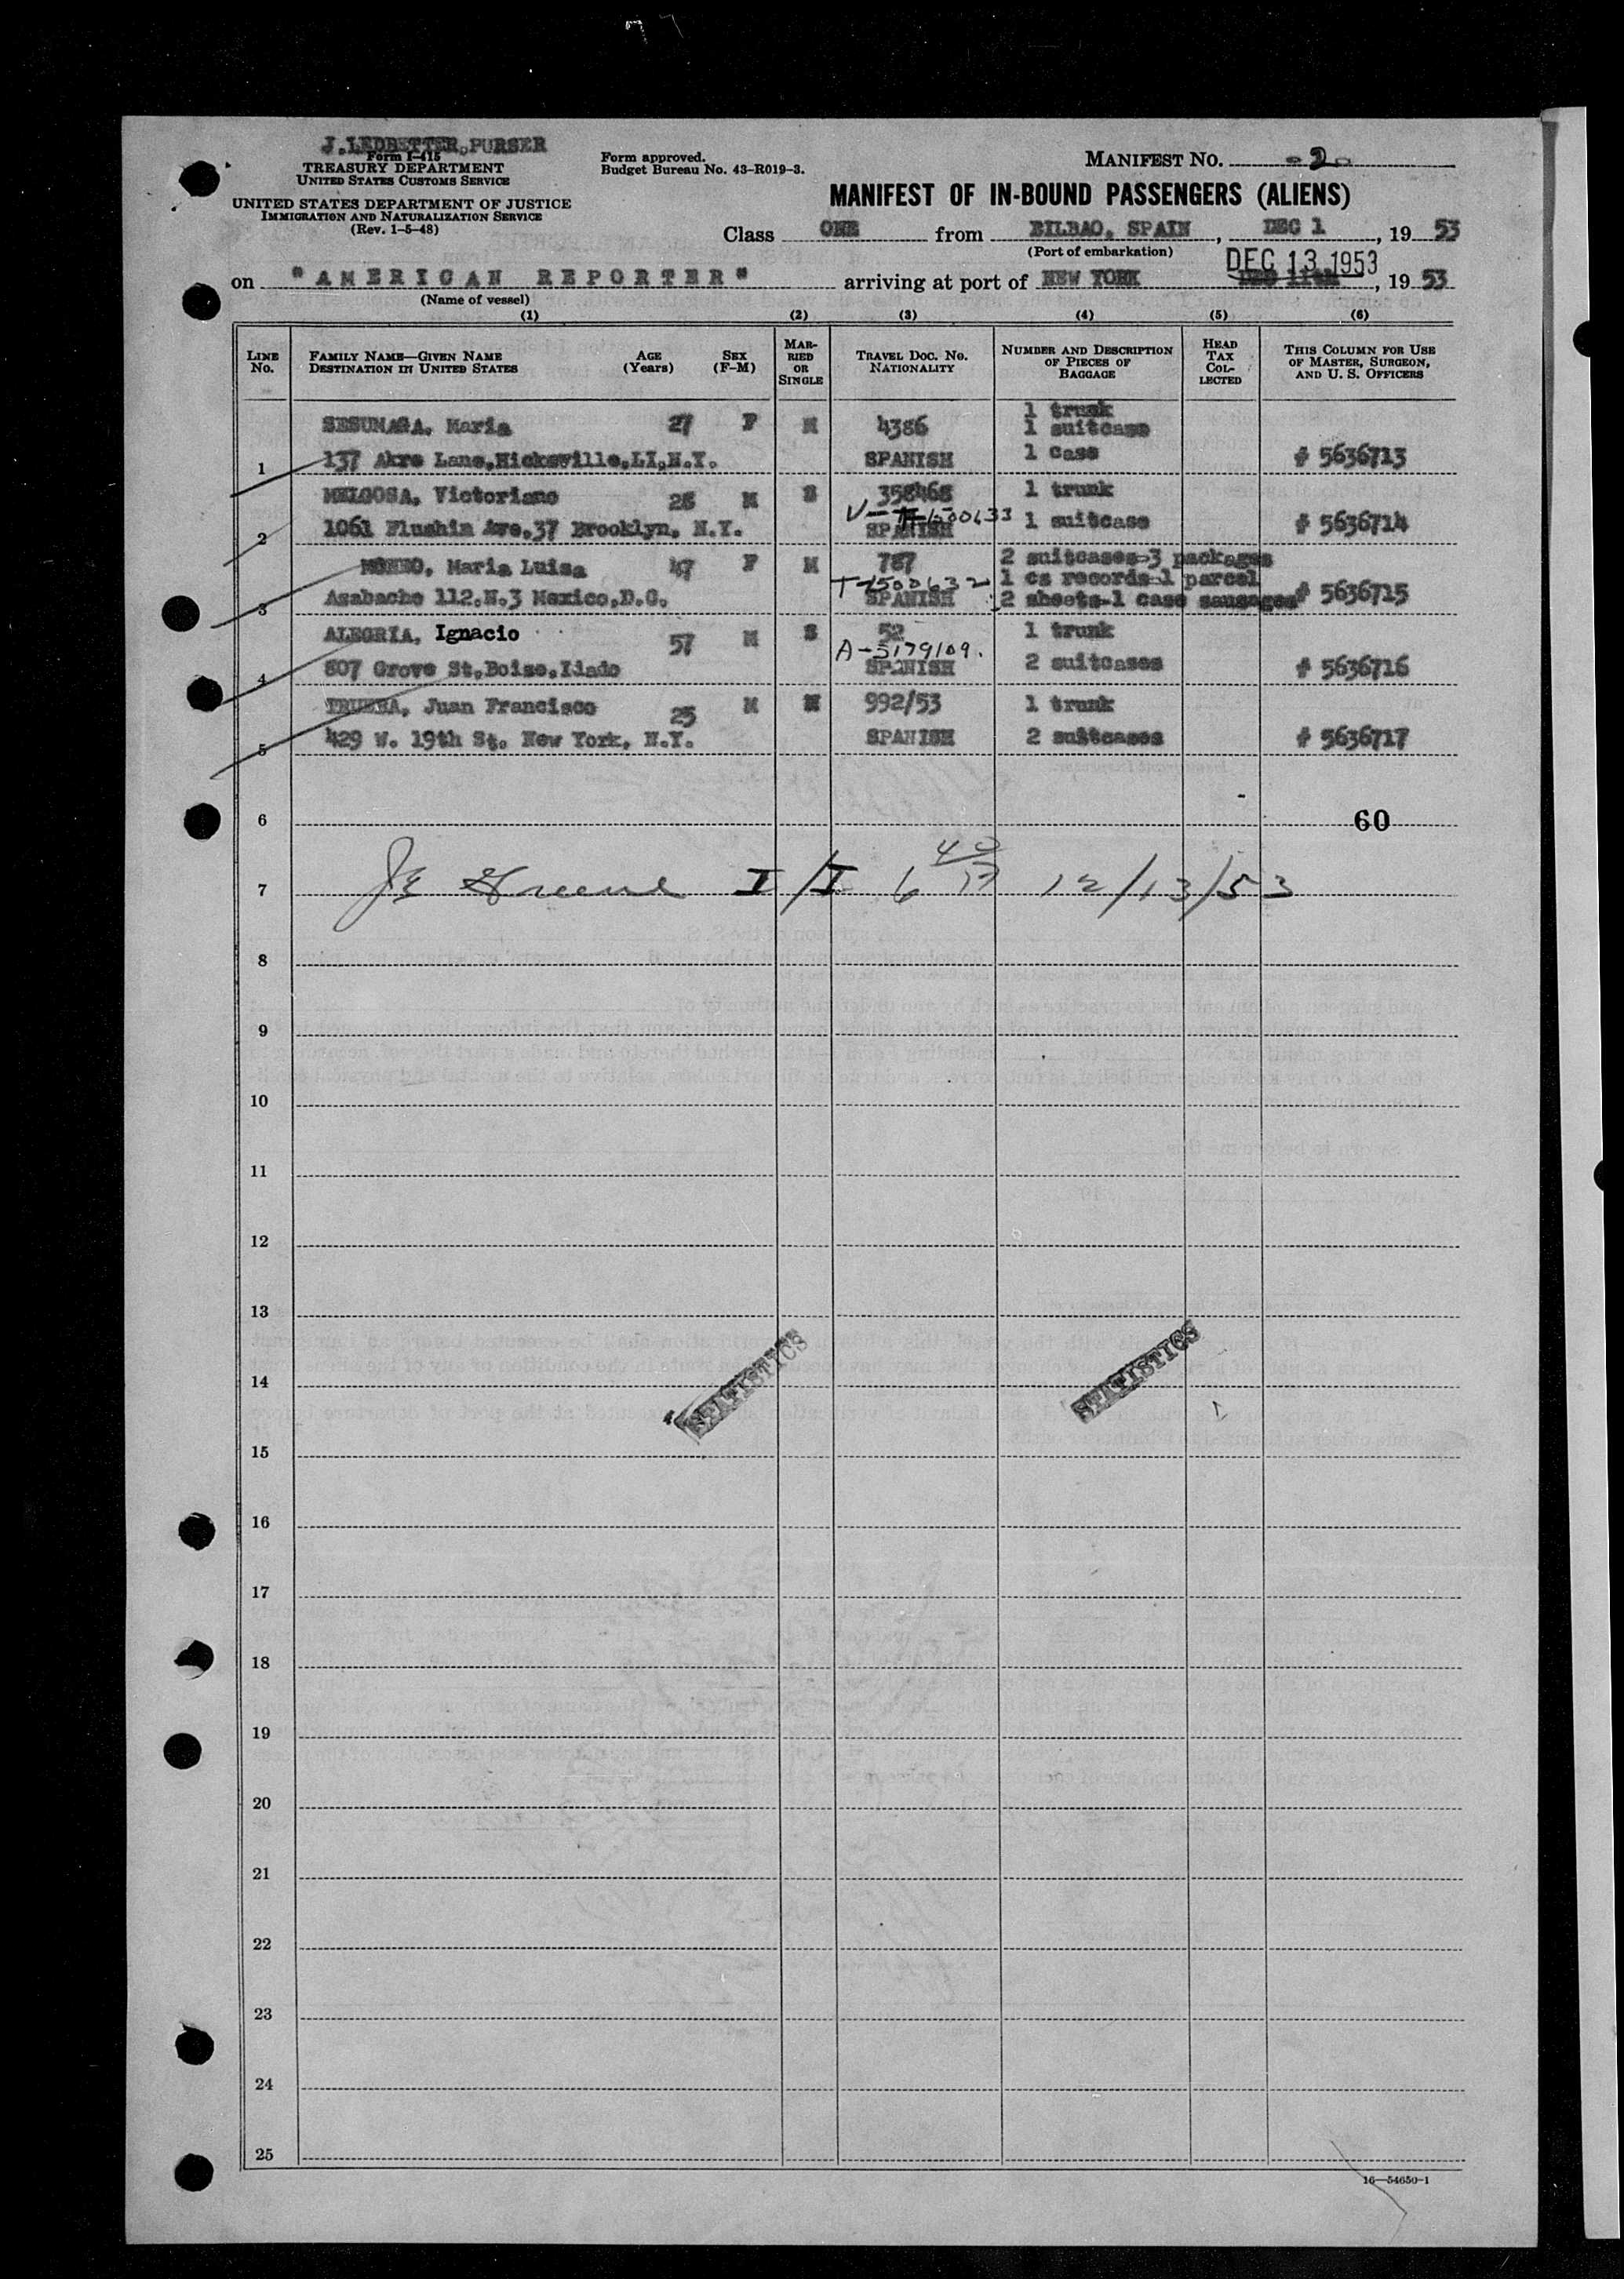 J.LEDBETTER,PURSER
Form I-415
TREASURY DEPARTMENT
UNITED STATES CUSTOMS SERVICE
UNITED STATES DEPARTMENT OF JUSTICE
IMMIGRATION AND NATURALIZATION SERVICE
(Rev. 1-5-48)
Form approved.
Budget Bureau No. 43-R019-3.
MANIFEST NO. -2-
MANIFEST OF IN-BOUND PASSENGERS (ALIENS)
Class ONE from BILBAO, SPAIN, DEC 1, 1953
(Port of embarkation)
DEC 13 1953
on "AMERICAN REPORTER" arriving at port of NEW YORK DEC 11th, 1953
(Name of vessel)
(1) (2) (3) (4) (5) (6)
LINE No. FAMILY NAME—GIVEN NAME DESTINATION IN UNITED STATES AGE (Years) SEX (F-M) MARRIED OR SINGLE TRAVEL DOC. NO. NATIONALITY NUMBER AND DESCRIPTION OF PIECES OF BAGGAGE HEAD TAX COLLECTED THIS COLUMN FOR USE OF MASTER, SURGEON, AND U. S. OFFICERS
1 trunk
SESUMAGA, Maria 27 F M 4386 1 suitcase
1 137 Akre Lane,Hicksville,LI,N.Y. SPANISH 1 case # 5636713
MELGOSA, Victoriano 28 M S 358468 1 trunk
V-1500633
2 1061 Flushin Ave,37 Brooklyn, N.Y. SPANISH 1 suitcase # 5636714
MONEO, Maria Luisa 47 F M 787 2 suitcases-3 packages
T-1500632 1 cs records-1 parcel
3 Azabache 112.N.3 Mexico,D.C. SPANISH 2 sheets-1 case sausages # 5636715
ALEGRIA, Ignacio 57 M S 52 1 trunk
A-5179109.
4 807 Grove St,Boise,Iiado SPANISH 2 suitcases # 5636716
TRUEBA, Juan Francisco 25 M M 992/53 1 trunk
5 429 W. 19th St. New York, N.Y. SPANISH 2 suitcases # 5636717
6 60
7 JE Greene I/I 6 40/17 12/13/53
8
9
10
11
12
13
STATISTICS STATISTICS
14
15
16
17
18
19
20
21
22
23
24
25
16—54650-1